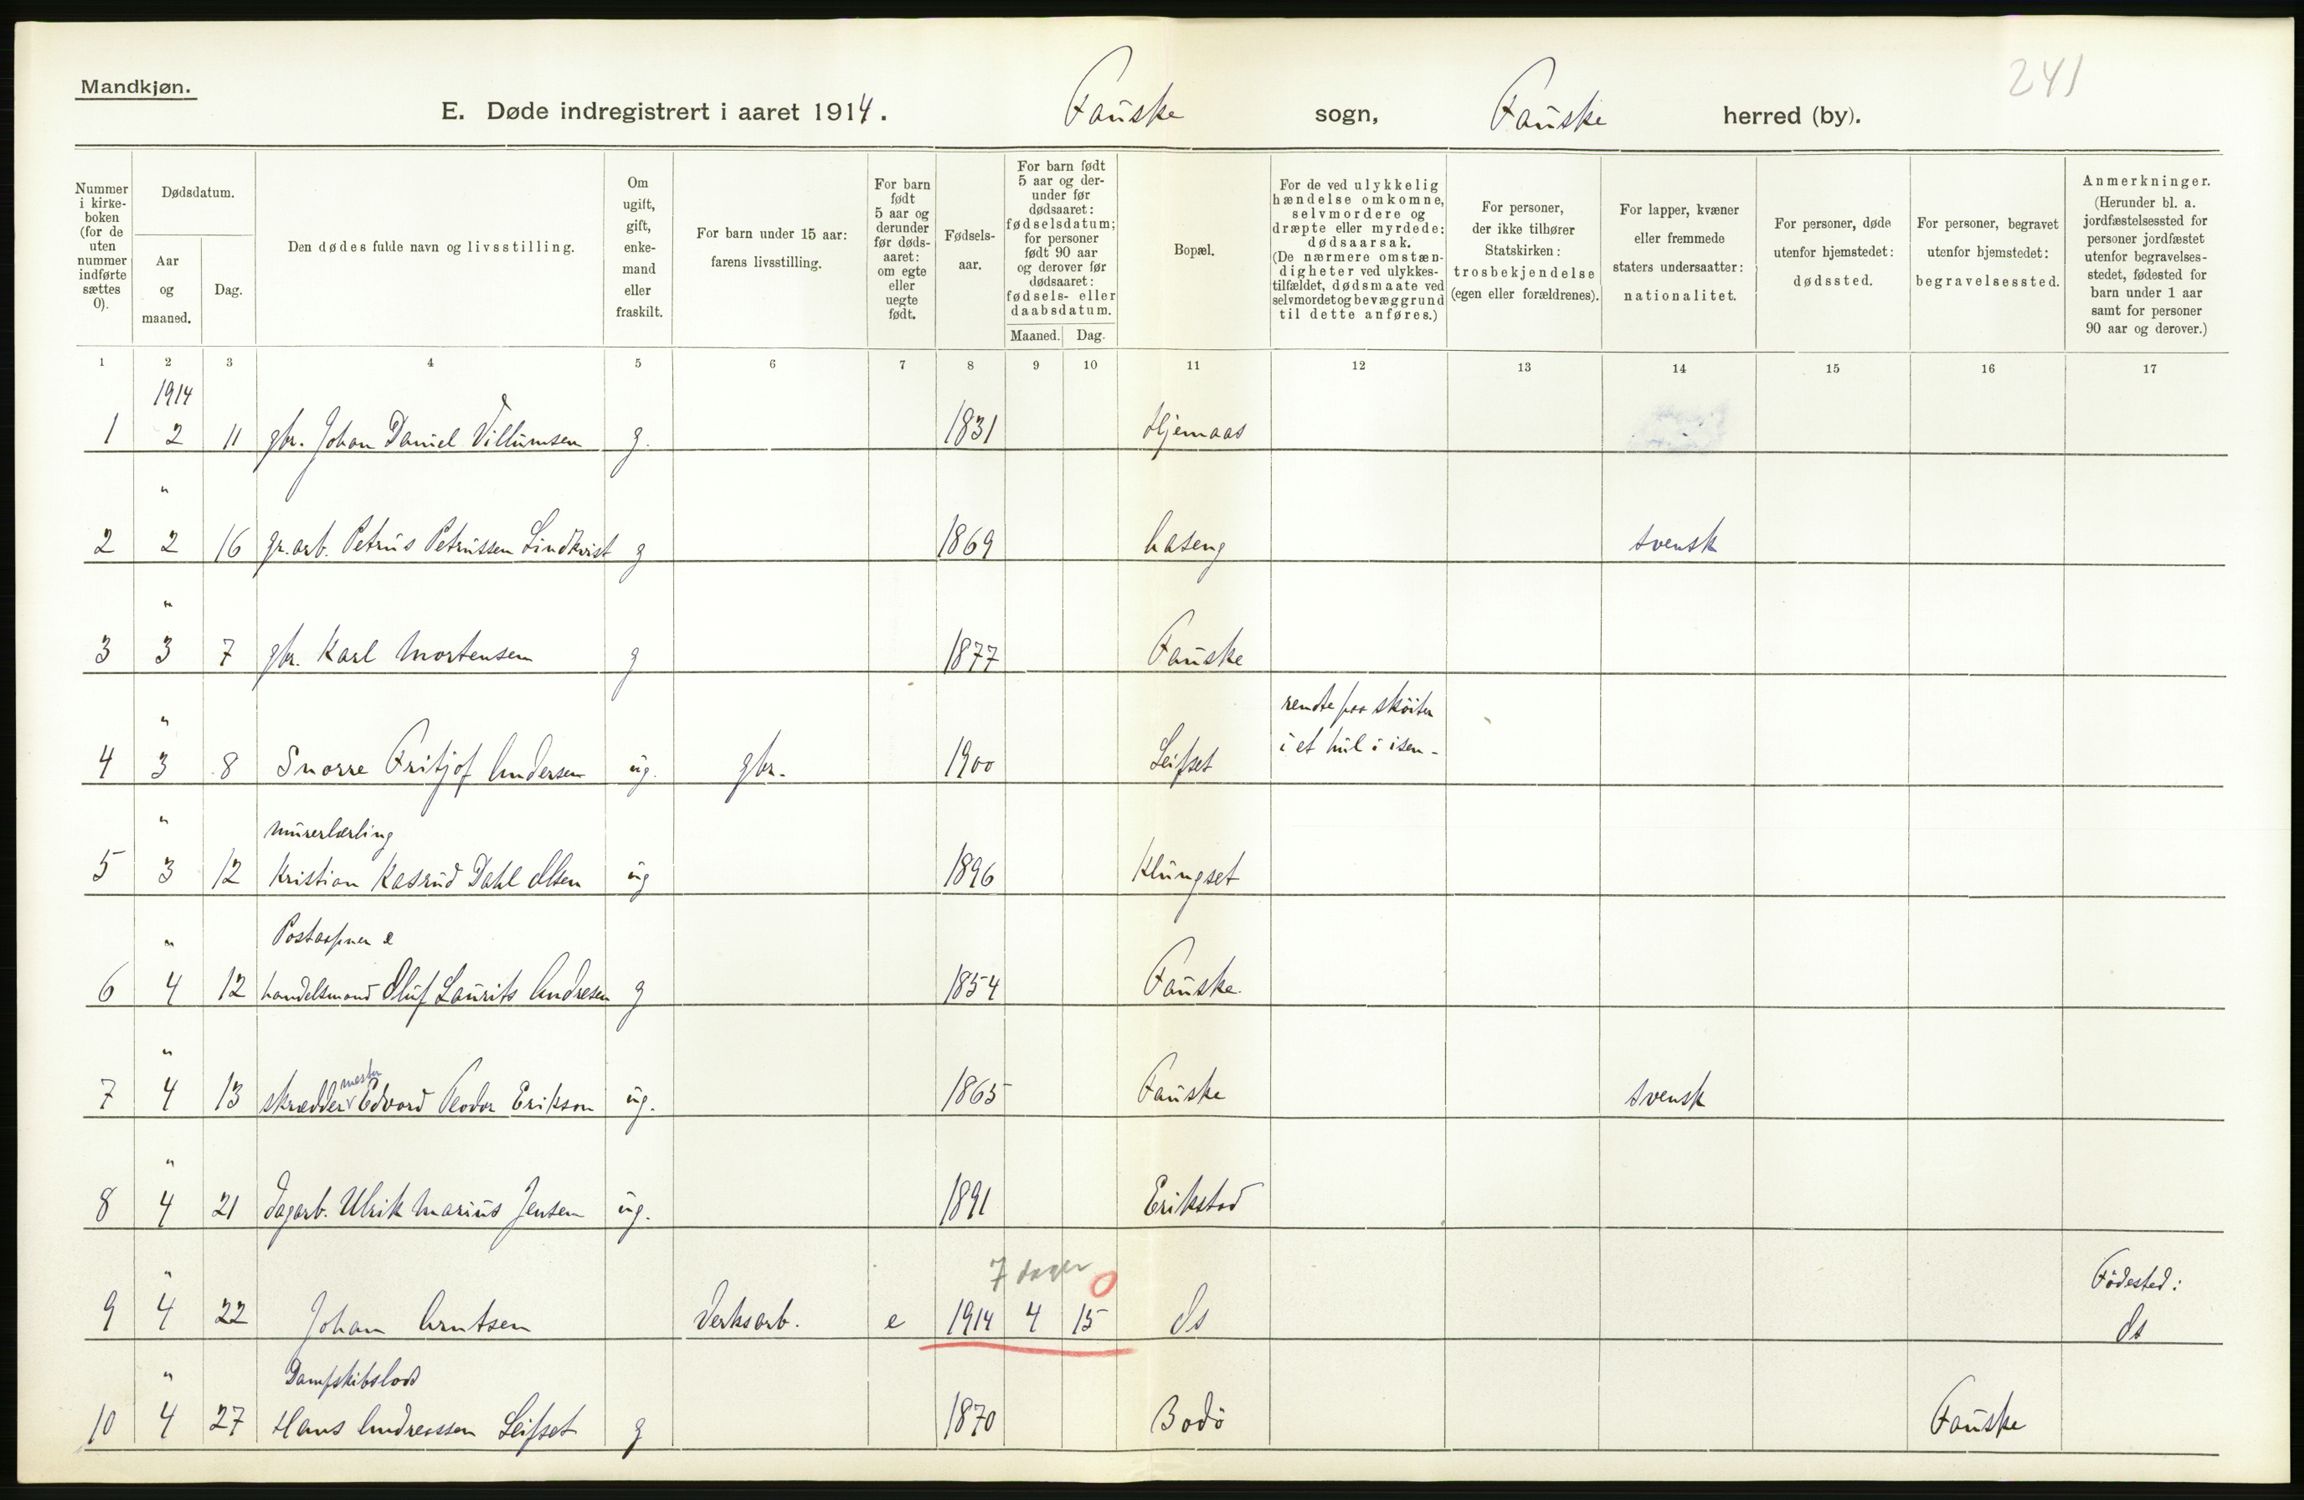 Mandkjøn.
241
E. Døde indregistrert i aaret 1914. Fauske sogn, Fauske herred (by).
Nummer i kirke-boken (for de uten nummer indførte sættes 0).
Dødsdatum.
Aar og maaned.
Dag.
Den dødes fulde navn og livsstilling.
Om ugift, gift, enke-mand eller fraskilt.
For barn under 15 aar: farens livsstilling.
For barn født 5 aar og derunder før døds-aaret: om egte eller uegte født.
Fødsels-aar.
For barn født 5 aar og der-under før dødsaaret: fødselsdatum; for personer født 90 aar og derover før dødsaaret: fødsels- eller daabsdatum.
Maaned. Dag.
Bopæl.
For de ved ulykkelig hændelse omkomne, selvmordere og dræpte eller myrdede: dødsaarsak. (De nærmere omstæn-digheter ved ulykkes-tilfældet, dødsmaate ved selvmordet og bevæggrund til dette anføres.)
For personer, der ikke tilhører Statskirken: trosbekjendelse (egen eller forældrenes).
For lapper, kvæner eller fremmede staters undersaatter: nationalitet.
For personer, døde utenfor hjemstedet: dødssted.
For personer, begravet utenfor hjemstedet: begravelsessted.
Anmerkninger. (Herunder bl. a. jordfæstelsessted for personer jordfæstet utenfor begravelses-stedet, fødested for barn under 1 aar samt for personer 90 aar og derover.)
1 2 3 4 5 6 7 8 9 10 11 12 13 14 15 16 17
1914
1 2 11 gbr. Johan Daniel Villumsen g. 1831 Hjemaas
"
2 2 16 gr.arb. Petrus Petrussen Lindkvist g 1869 Haseng svensk
"
3 3 7 gbr. Karl Mortensen g 1877 Fauske
" rendte paa skøiter
4 3 8 Snorre Fritjof Andersen ug. gbr. 1900 Leifset i et hul i isen -
" murerlærling
5 3 12 Kristian Kasrud Dahl Olsen ug 1896 Klungset
" Postaapner &
6 4 12 handelsmand Oluf Laurits Andresen g 1854 Fauske.
"
7 4 13 skræddermester Edvard Teodor Erikson ug. 1865 Fauske svensk
"
8 4 21 dagarb. Ulrik Marius Jensen ug. 1891 Erikstad
" 7 dager 0 Fødested:
9 4 22 Johan Arntsen Verksarb. e 1914 4 15 ds ds
" Dampskibslods
10 4 27 Hans Andreassen Leifset g 1870 Bodø Fauske